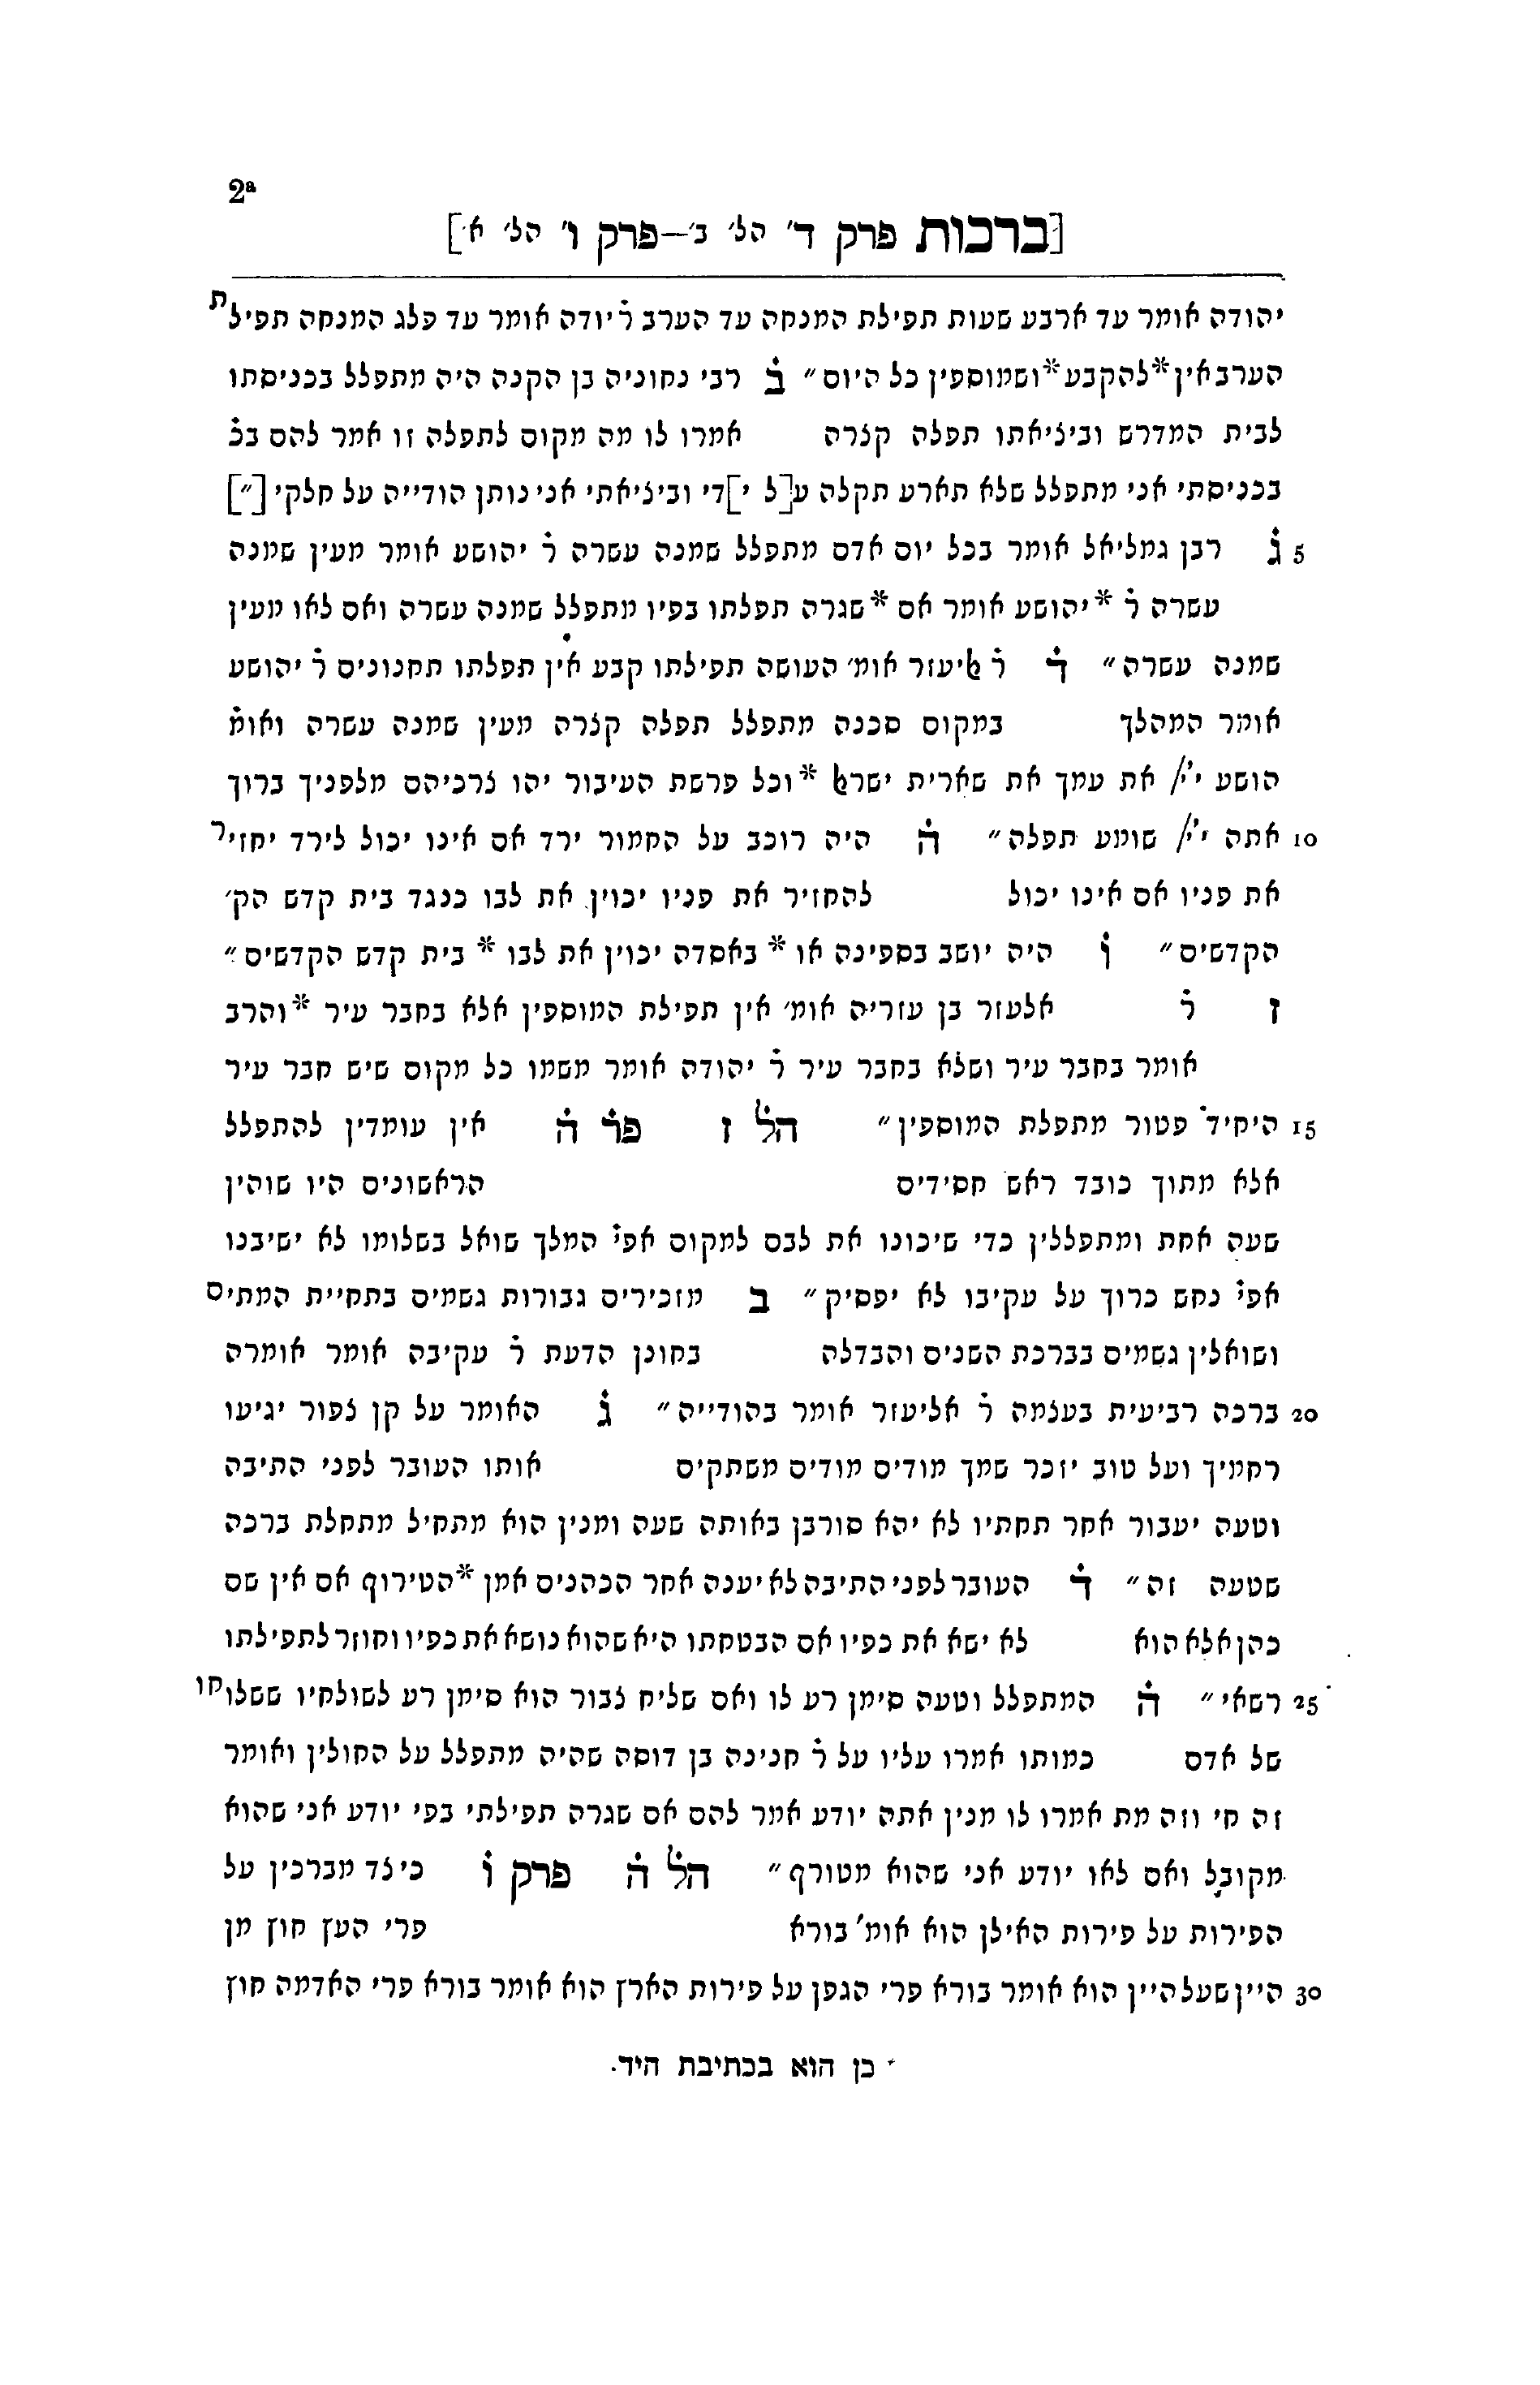 2ª
[ברכות פרק ד׳ הל׳ ב׳—פרק ו׳ הל׳ א׳]
יהודה אומר עד ארבע שעות תפילת המנחה עד הערב ר̇ יודה אומר עד פלג המנחה תפילת
הערב אין*להקבע*ושמוספין כל היום״ ב̇ רבי נחוניה בן הקנה היה מתפלל בכניסתו
לבית המדרש וביציאתו תפלה קצרה אמרו לו מה מקום לתפלה זו אמר להם בכ̇
בכניסתי אני מתפלל שלא תארע תקלה ע[ל י]די וביציאתי אני נותן הודייה על חלקי [״]
5 ג̇ רבן גמליאל אומר בכל יום אדם מתפלל שמנה עשרה ר̇ יהושע אומר מעין שמנה
עשרה ר̇ *יהושע אומר אם *שגרה תפלתו בפיו מתפלל שמנה עשרה ואם לאו מעין
שמנה עשרה״ ד̇ ר̇ ﭏיעזר אומ׳ העושה תפילתו קבע אין תפלתו תחנונים ר̇ יהושע
אומר המהלך במקום סכנה מתפלל תפלה קצרה מעין שמנה עשרה ואומ̇
הושע יי׳/ את עמך את שארית ישרﭏ *וכל פרשת העיבור יהו צרכיהם מלפניך ברוך
10 אתה יי׳/ שומע תפלה״ ה̇ היה רוכב על החמור ירד אם אינו יכול לירד יחזיר
את פניו אם אינו יכול להחזיר את פניו יכוין את לבו כנגד בית קדש הק׳
הקדשים״ ו̇ היה יושב בספינה או *באסדה יכוין את לבו *בית קדש הקדשים״
ז ר̇ אלעזר בן עזריה אומ׳ אין תפילת המוספין אלא בחבר עיר *והרב
אומר בחבר עיר ושלא בחבר עיר ר̇ יהודה אומר משמו כל מקום שיש חבר עיר
15 היחיד פטור מתפלת המוספין״ הל̇ ז פר̇ ה̇ אין עומדין להתפלל
אלא מתוך כובד ראש חסידים הראשונים היו שוהין
שעה אחת ומתפללין כדי שיכונו את לבם למקום אפי̇ המלך שואל בשלומו לא ישיבנו
אפי̇ נחש כרוך על עקיבו לא יפסיק״ ב מזכירים גבורות גשמים בתחיית המתים
ושואלין גשמים בברכת השנים והבדלה בחונן הדעת ר̇ עקיבה אומר אומרה
20 ברכה רביעית בעצמה ר̇ אליעזר אומר בהודייה״ ג̇ האומר על קן צפור יגיעו
רחמיך ועל טוב יזכר שמך מודים מודים משתקים אותו העובר לפני התיבה
וטעה יעבור אחר תחתיו לא יהא סורבן באותה שעה ומנין הוא מתחיל מתחלת ברכה
שטעה זה״ ד̇ העובר לפני התיבה לא יענה אחר הכהנים אמן *הטירוף אם אין שם
כהן אלא הוא לא ישא את כפיו אם הבטחתו היא שהוא נושא את כפיו וחוזר לתפילתו
25 רשאי״ ה̇ המתפלל וטעה סימן רע לו ואם שליח צבור הוא סימן רע לשולחיו ששלוחו
של אדם כמותו אמרו עליו על ר̇ חנינה בן דוסה שהיה מתפלל על החולין ואומר
זה חי וזה מת אמרו לו מנין אתה יודע אמר להם אם שגרה תפילתי בפי יודע אני שהוא
מקובל ואם לאו יודע אני שהוא מטורף״ הל̇ ה̇ פרק ו̇ כיצד מברכין על
הפירות על פירות האילן הוא אומ׳ בורא פרי העץ חוץ מן
30 היין שעל היין הוא אומר בורא פרי הגפן על פירות הארץ הוא אומר בורא פרי האדמה חוץ
* כן הוא בכתיבת היד.